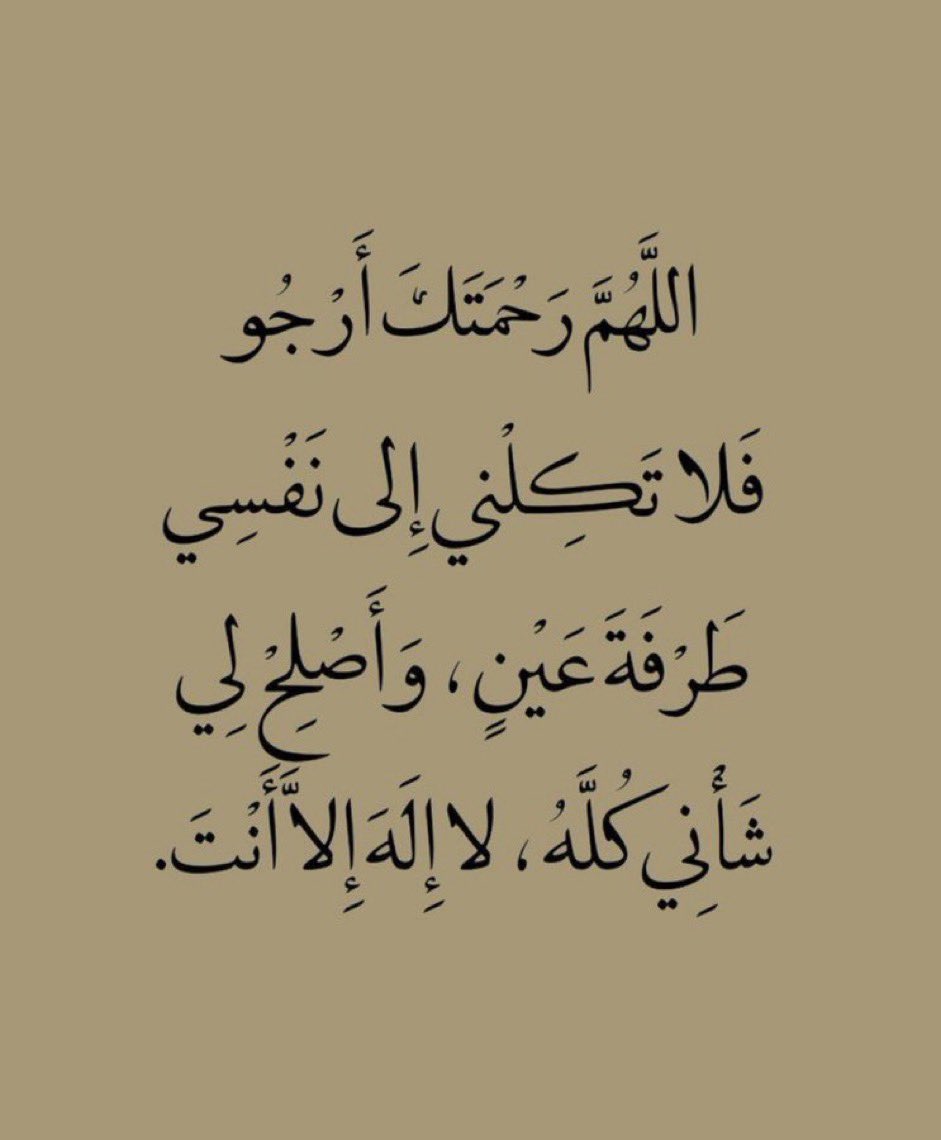 اللَّهُمَّ رَحْمَتَكَ أَرْجُو
فَلا تَكِلْني إِلى نَفْسِي
طَرْفَةَ عَيْنٍ، وَأَصْلِحْ لِي
شَأْنِي كُلَّهُ، لا إِلَهَ إِلاَّ أَنْتَ.